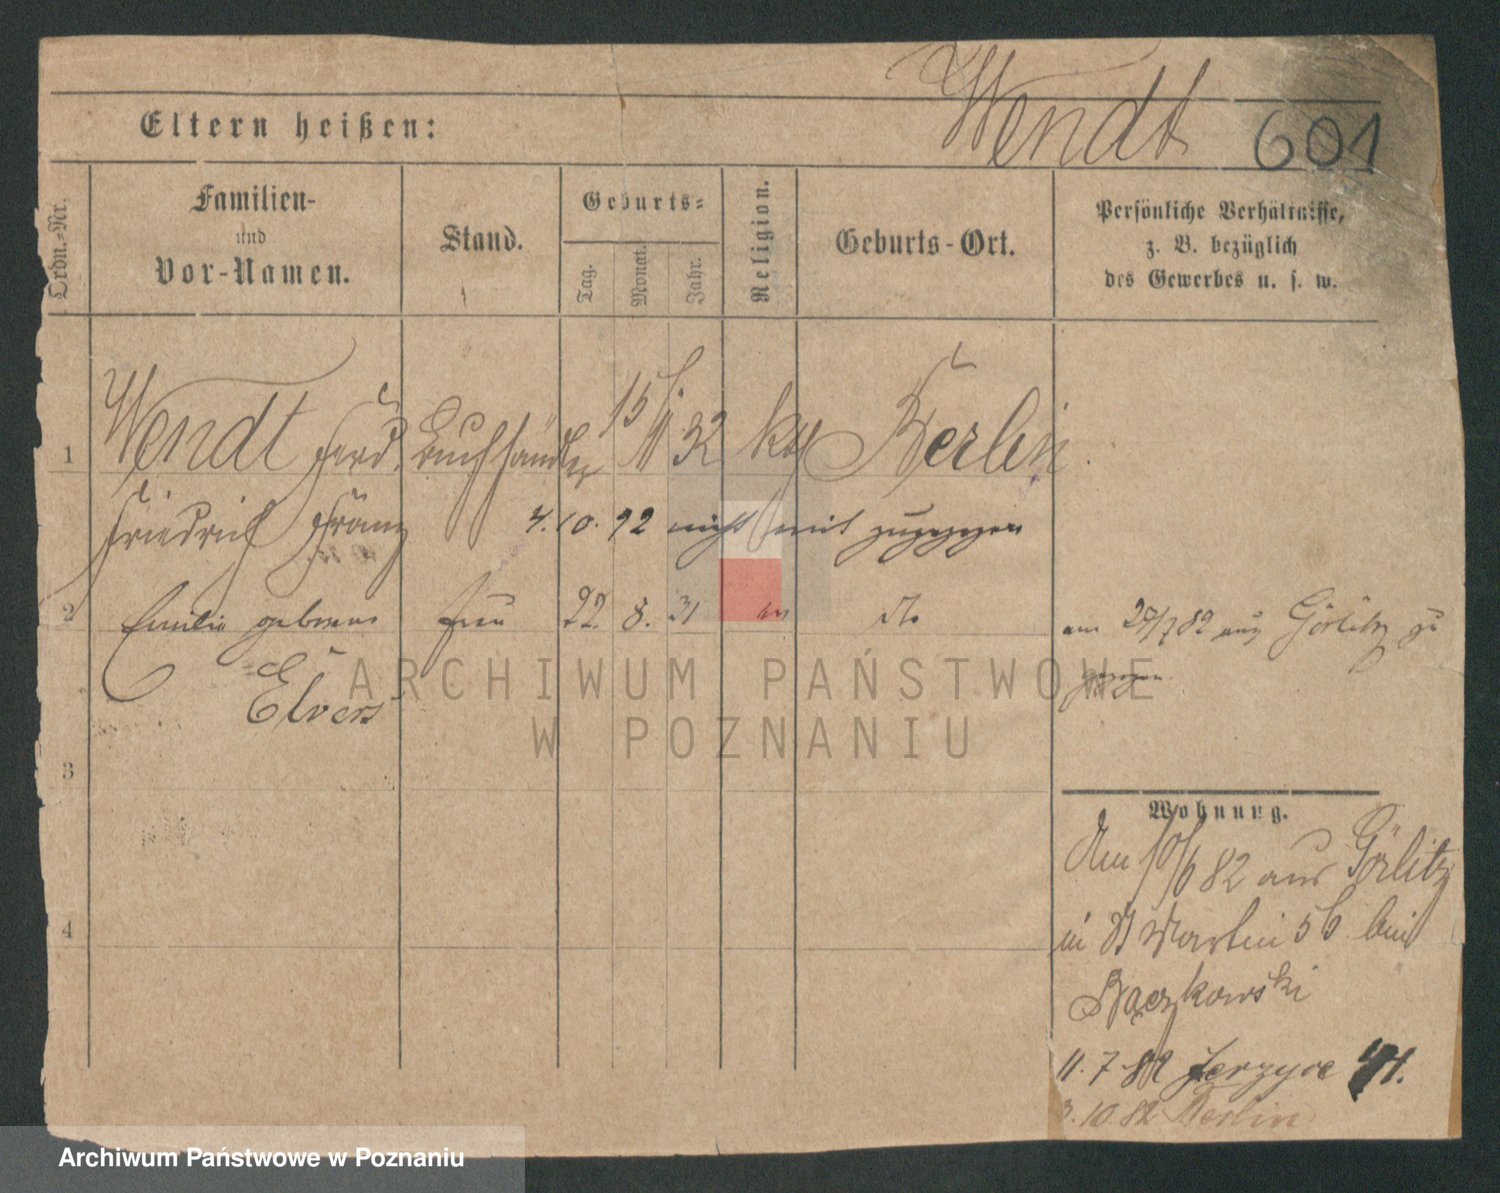 Wendt 601
Eltern heißen:
Ordn.-Nr.
Familien-
und
Vor-Namen.
Stand.
Geburts-
Tag.
Monat.
Jahr.
Religion.
Geburts-Ort.
Persönliche Verhältnisse,
z. B. bezüglich
des Gewerbes u. s. w.
1 Wendt Ferd. Buchhändler 15 32 Berlin
Friedrich Franz 4.10.92 nicht mit zugezogen
2 Emilie geborene Frau 22. 8. 31 dto
Elvers
am 27/7 82 aus Görlitz zu
gezogen
3
4
Wohnung.
Am 10/6 82 aus Görlitz
in St Martin 56 bei
Bączkowski
11. 7. 82 Jerzyce 41.
3. 10. 82 Berlin
ARCHIWUM PAŃSTWOWE
W POZNANIU
Archiwum Państwowe w Poznaniu